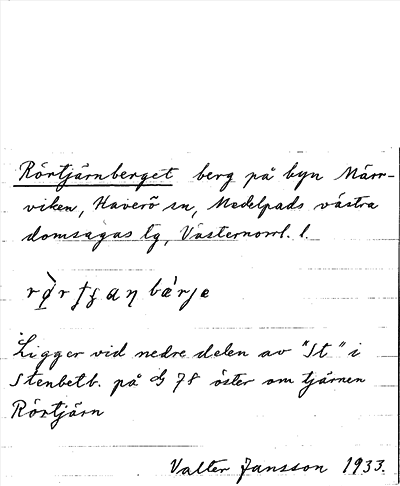 Rörtjärnberget berg på byn Märr-
viken, Haverö sn, Medelpads västra
domsagas tg, Västernorrl. l.
Ligger vid nedre delen av "St" i
Stenbetb. på G 78 öster om tjärnen
Rörtjärn
Valter Jansson 1933.